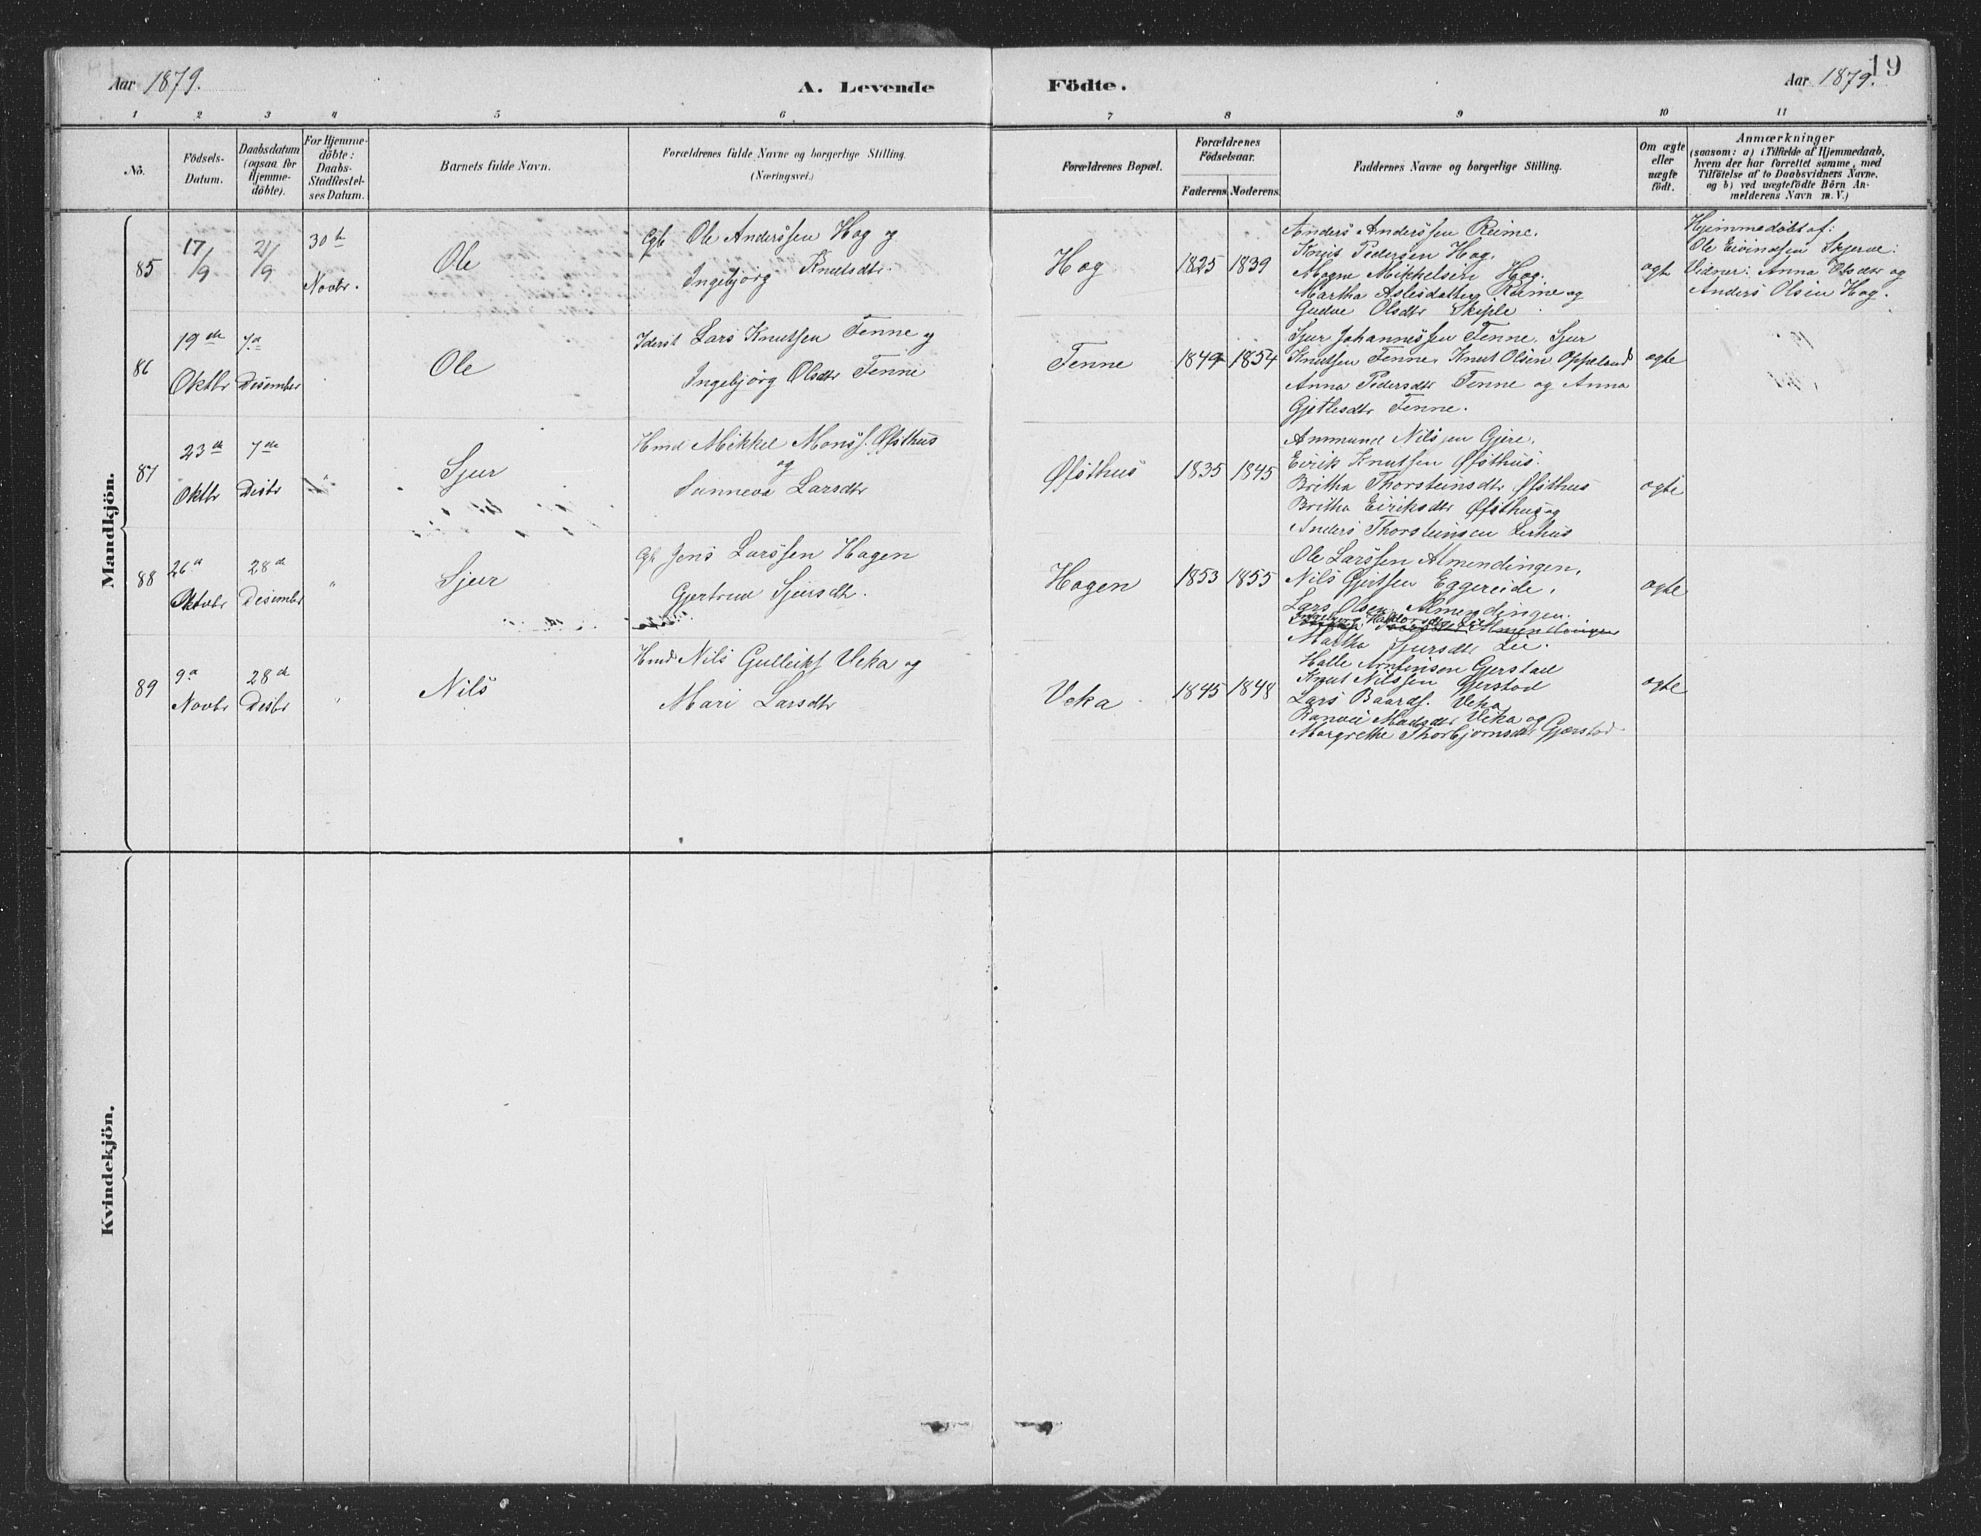 Aar 1879. A. Levende Födte. Aar 1879. 19
1 2 3 4 5 6 7 8 9 10 11
No.
Födsels-
Datum.
Daabsdatum
(ogsaa for
Hjemme-
döbte).
For Hjemme-
döbte:
Daabs-
Stadfæstel-
ses Datum.
Barnets fulde Navn.
Forældrenes fulde Navne og borgerlige Stilling.
(Næringsvei.)
Forældrenes Bopæl.
Forældrenes
Födselsaar.
Faderens Moderens
Faddernes Navne og borgerlige Stilling.
Om ægte
eller
uægte
födt.
Anmærkninger
(saasom: a) i Tilfælde af Hjemmedaab,
hvem der har forrettet samme, med
Tilföielse af to Daabsvidners Navne,
og b) ved uægtefödte Börn An-
melderens Navn m. V.)
Mandkjön.
85
17/9
21/9
30te
Novbr.
Ole
Gb Ole Anderssen Hog og
Ingebjörg Knutsdtr.
Hog
1825 1839
Anders Anderssen Reime.
Knut Pedersen Hog.
Mogne Mikkelsen Hog.
Martha Aslesdatter Reime og
Gudve Olsdtr Skiple
ogte
Hjemmedöbt af:
Ole Eivindsen Skjerve:
Vidner: Anna Olsdtr og
Anders Olsen Hog.
86
19de
Oktbr
7de
Desember
Ole
Iderst Lars Knutsen Tenne og
Ingebjörg Olsdtr Tenne
Tenne
1849 1854
Sjur Johannessen Tenne. Sjur
Knutsen Tenne. Knut Olsen Oppeland
Anna Pedersdtr Tenne og Anna
Gjetlesdtr Tenne.
ogte
87
23de
Oktbr
7de
Desbr
"
Sjur
Hmd Mikkel Monss. Øfsthus
og
Sunneva Larsdtr
Øfsthus
1835 1845
Ammund Nilsen Gjere.
Eirik Knutsen Øfsthus.
Britha Thorsteinsdtr Øfsthus
Britha Eiriksdtr Øfsthus og
Anders Thorsteinsen Lirhus
ogte
88
26de
Oktobr
28de
Desembr
"
Sjur
Gb Jens Larssen Hagen
Gjertrud Sjursdtr.
Hagen
1853 1855
Ole Larssen Almendingen,
Nils Gjertsen Eggereide,
Lars Olsen Almendingen.
Ingeborg Haldorsdtr
Martha Sjursdtr Lie.
ogte
89
9de
Novbr
28de
Desbr
"
Nils
Hmd Nils Gulleiks Veka og
Mari Larsdtr
Veka
1845 1848
Halle Arnfinsen Gjerstad
Knut Nilssen Gjerstad
Lars Baards. Veka
Ranvei Madsdtr Veka og
Margrethe Thorbjörnsdtr Gjerstad
ogte
Kvindekjön.